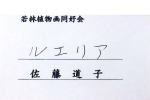 若林植物画同好会
ルエリア
佐藤道子